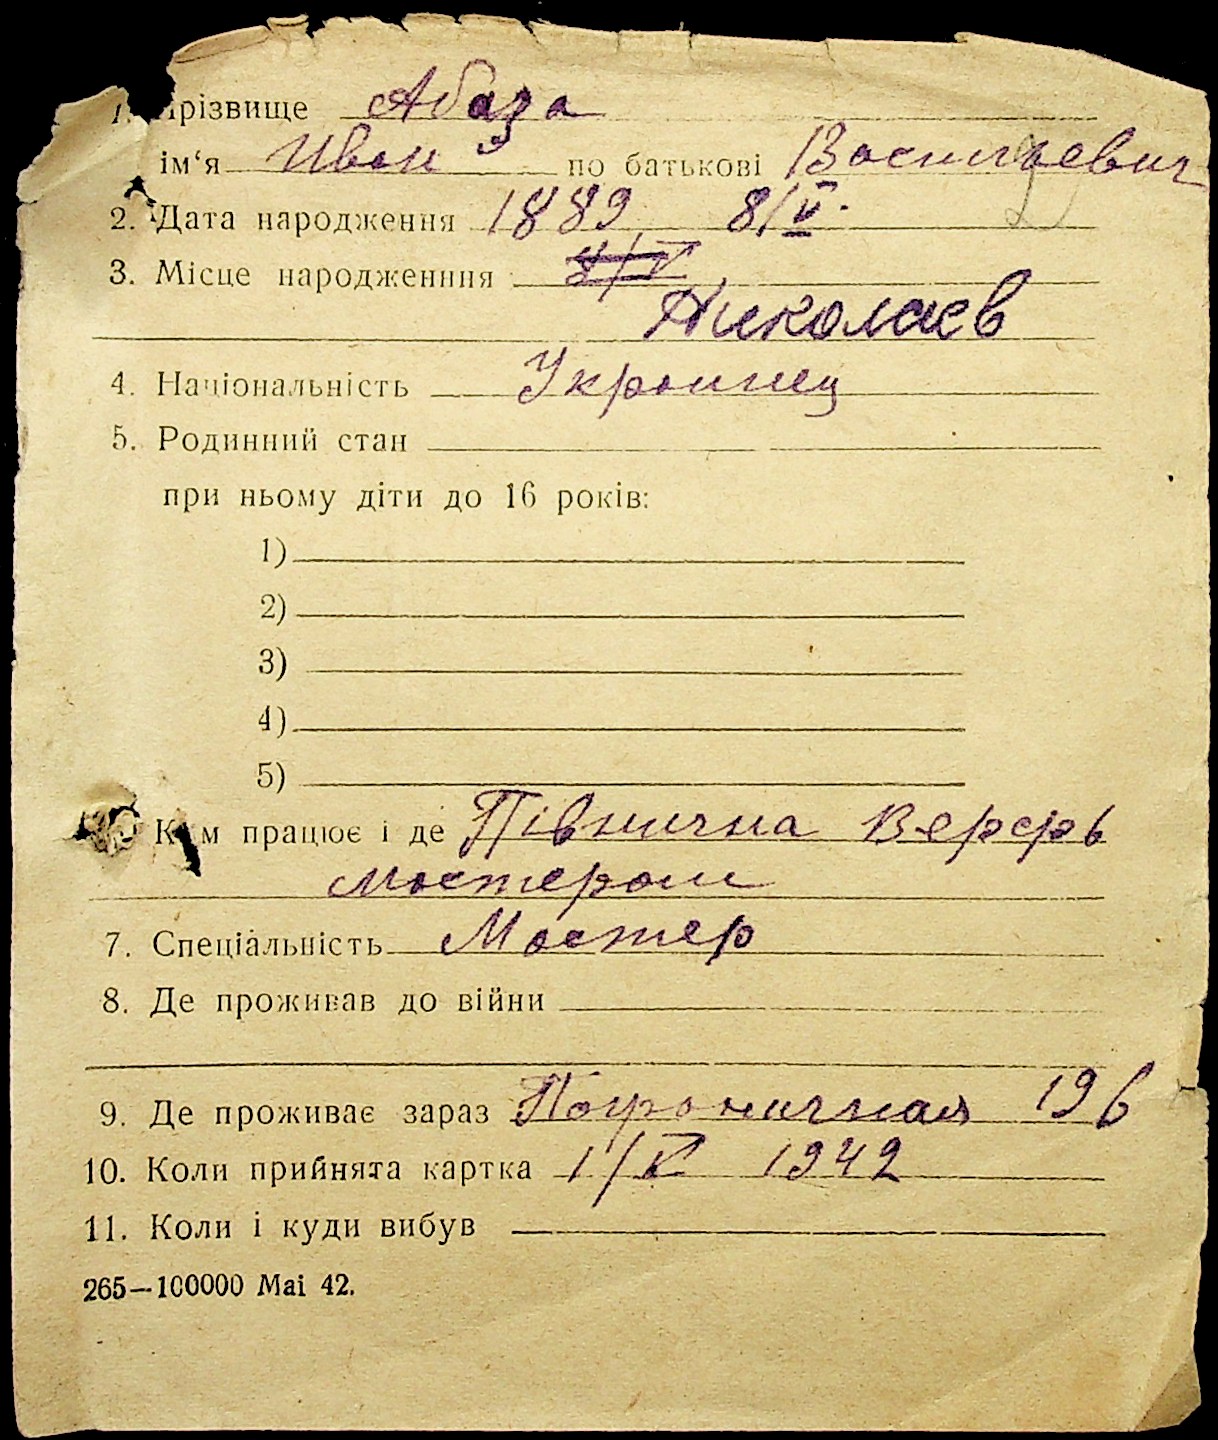 1. Прізвище Абаза
ім‘я Иван по батькові Васильевич
2. Дата народження 1889 8/V.
3. Місце народженння 8/V
Николаев
4. Національність Украинец
5. Родинний стан
при ньому діти до 16 років:
1)
2)
3)
4)
5)
Ким працює і де Північна Верфь
мастером
7. Спеціальність Мастер
8. Де проживав до війни
9. Де проживає зараз 196
10. Коли прийнята картка 1/V 1942
11. Коли і куди вибув
265—100000 Mai 42.